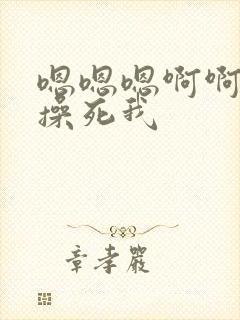 嗯嗯嗯啊啊
操死我
章孝严